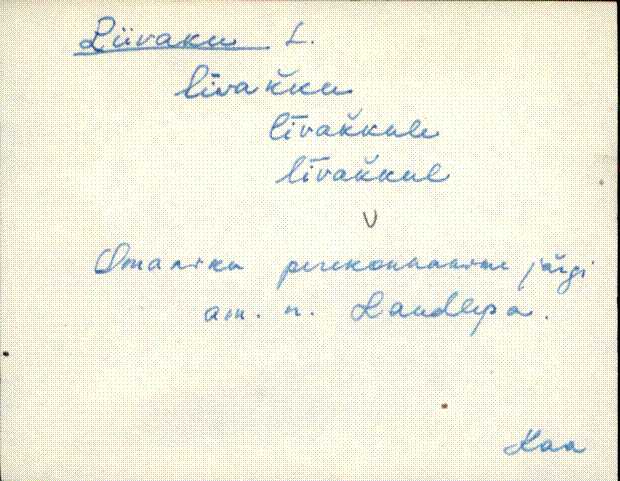 Liivaku L.
līvak̆ku
līvak̆kule
līvak̆kul
V
Omaniku perekonnanime järgi
am. n. Laudlepa.
Kaa